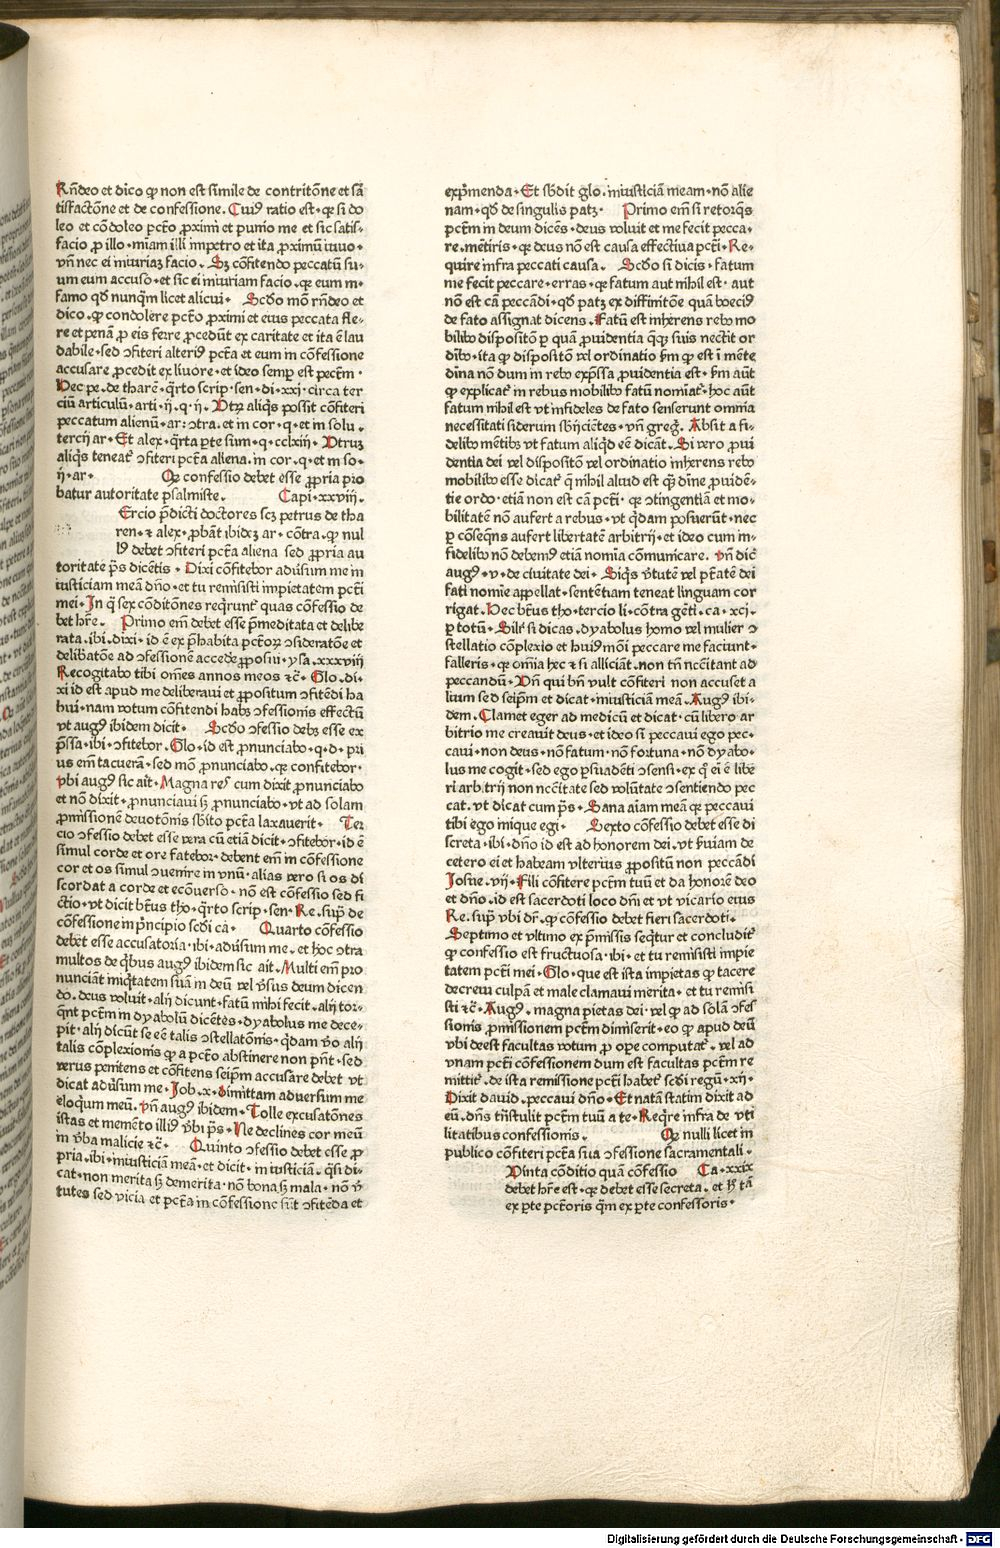 Rñdeo et dico ꝙ non est simile de contritõne et sã
tisfactõne et de confessione. Cuiꝰ ratio est·qꝛ si do
leo et cõdoleo pctõ ꝓximi et punio me et sic satis⸗
facio ꝓ illo·miam illi impetro et ita ꝓximũ iuuo·
vñ nec ei iniuriaꝫ facio·Sꝫ cõfitendo peccatũ su⸗
um eum accuso·et sic ei iniuriam facio·qꝛ eum in⸗
famo qď nunq̃m licet alicui· Scďo mõ rñdeo et
dico·ꝙ condolere pctõ ꝓximi et eius peccata fle⸗
re et penã ꝓ eis ferre ꝓcedũt ex caritate et ita ẽ lau
dabile·sed ↄfiteri alteriꝰ pctã et eum in cõfessione
accusare ꝓcedit ex liuore·et ideo semꝑ est pectm̃·
Hec pe·de tharẽ·q̃rto scrip·sen·di·xxi·circa ter
ciũ articulũ·arti·ij·q·ij· Vtꝝ aliq̃s possit cõfiteri
peccatum alienũ·ar: ↄtra·et in cor·q·et in solu·
tercij ar·Et alex·q̃rta ꝑte sum·q·cclxiii·Vtruꝫ
aliq̃s teneatʳ ↄfiteri pctã aliena·in cor·q·et in so⸗
ij·ar· Qꝫ confessio debet esse ꝓpria pro
batur autoritate psalmiste· Capi·xxviii·
Ercio p̃dicti doctores scꝫ petrus de tha
ren·⁊ alex·ꝓbãt ibideꝫ ar·cõtra·ꝙ nul
lꝰ debet ↄfiteri pctã aliena sed ꝓpria au
toritate p̃s dicẽtis· Dixi confitebor aduſum me in
iusticiam meam dño·et tu remisisti impietatem pcti
mei·In q̃ sex cõditões req̃runtʳ quas confessio de
bet hr̃e· Primo em̃ debet esse p̃meditata et delibe
rata·ibi·dixi·id ẽ ex p̃habita pctõꝝ ↄsideratõe et
delibatõe ad ↄfessionẽ accedẽ ꝓposui·ysa·xxxviij
Recogitabo tibi om̃es annos meos ⁊c̃· Glo·di⸗
xi id est apud me deliberaui et ꝓpositum ↄfitendi ha
bui·nam votum confitendi habꝫ ↄfessionis effectũ
vt augꝰ ibidem dicit· Scďo ↄfessio debꝫ esse ex
p̃ssa·ibi·ↄfitebor·Glo·id est ꝓnunciabo·q·d·pri
us em̃ tacuerã·sed mõ ꝓnunciabo·qꝛ confitebor·
vbi augꝰ sic ait·Magna res cum dixit ꝓnunciabo
et nõ dixit·ꝓnunciaui sꝫ ꝓnunciabo·vt ad solam
ꝓmissionẽ deuotõnis sb̃ito pctã laxauerit· Ter
cio ↄfessio debet esse vera cũ etiã dicit·ↄfitebor·id ẽ
simul corde et ore fatebor·debent em̃ in cõfessione
cor et os simul ↄuenire in vnũ·alias vero si os di
scordat a corde et ecõuerso·nõ est cõfessio sed fi
ctio·vt dicit btũs tho·q̃rto scrip·sen·Re·sup̃ de
cõfessione in p̃ncipio scďi cã· Quarto cõfessio
debet esse accusatoria·ibi·aduſum me·et hoc ↄtra
multos de q̃bus augꝰ ibidem sic ait·Multi em̃ pro
nunciãt iniq̃tatem suã in deũ vel ṽsus deum dicen
do·deus voluit·alij dicunt·fatũ mihi fecit·alij tor⸗
q̃nt pctm̃ in dyabolũ dicẽtes·dyabolus me dece⸗
pit·alij dicũt se eẽ talis ↄstellatõnis·q̃dam ṽo alij
talis cõplexionis ꝙ a pctõ abstinere non pñt·sed
verus penitens et cõfitens seip̃m accusare debet vt
dicat aduſum me·Job·x·dimittam aduersum me
eloqum meũ·vñ augꝰ ibidem·Tolle excusatões
istas et memẽto illiꝰ ṽbi p̃s·Ne declines cor meũ
in ṽba malicie ⁊c̃· Quinto ↄfessio debet esse ꝓ
pria·ibi·iniusticiã meã·et dicit·iniusticiã·q̃si di⸗
cat·non merita sꝫ demerita·nõ bona sꝫ mala·nõ ṽ
tutes sed vicia et pctã in cõfessione sũt ↄfitẽda et
exp̃menda·Et sb̃dit glo·iniusticiã meam·nõ alie
nam·qď de singulis patꝫ· Primo em̃ si retorq̃s
pctm̃ in deum dicẽs·deus voluit et me fecit pecca⸗
re·mẽtiris·qꝛ deus nõ est causa effectiua pcti·Re⸗
quire infra peccati causa· Scďo si dicis·fatum
me fecit peccare·erras·qꝛ fatum aut nihil est·aut
nõ est cã peccãdi·qď patꝫ ex diffinitõe quã boeciꝰ
de fato assignat dicens·Fatũ est inherens rebꝰ mo
bilibꝰ dispositõ ꝑ quã ꝓuidentia q̃qꝫ suis nectit or
dĩbꝰ·ita ꝙ dispositõ vel ordinatio ẽm ꝙ est ĩ mẽte
diĩna nõ dum in rebꝰ exp̃ssa ꝓuidentia est·ẽm aũt
ꝙ explicatʳ in rebus mobilibꝰ fatũ nomiatʳ·hoc aũt
fatum nihil est vt infideles de fato senserunt omnia
necessitati siderum sb̃ijciẽtes·vñ greg̃·Absit a fi⸗
delibꝰ mẽtibꝫ vt fatum aliq̃d eẽ dicãt·Si vero ꝓui
dentia dei vel dispositõ vel ordinatio inherens rebꝰ
mobilibꝰ esse dicatʳ q̃ nihil aliud est q̃ diĩne ꝓuidẽ⸗
tie ordo·etiã non est cã pcti·qꝛ ↄtingentiã et mo⸗
bilitatẽ nõ aufert a rebus·vt q̃dam posuerũt·nec
ꝑ cõseq̃ns aufert libertatẽ arbitrij·et ideo cum in⸗
fidelibꝰ nõ debemꝰ etiã nomĩa cõmunicare· vñ dic̃
augꝰ·v·de ciuitate dei·Siq̃s ṽtutẽ vel ptãtẽ dei
fati nomĩe appellat·sentẽtiam teneat linguam cor
rigat·Hec btũs tho·tercio li·cõtra gẽti·ca·xcj·
ꝑ totũ·Silr̃ si dicas·dyabolus homo vel mulier ↄ
stellatio cõplexio et huiꝰmõi peccare me faciunt·
falleris·qꝛ om̃ia hec ⁊ si alliciãt·non tñ nc̃citant ad
peccandũ·Vñ qui bñ vult cõfiteri non accuset a
lium sed seip̃m et dicat·iniusticiã meã·Augꝰ ibi⸗
dem·Clamet eger ad medicũ et dicat·cũ libero ar
bitrio me creauit deus·et ideo si peccaui ego pec⸗
caui·non deus·nõ fatum·nõ fortuna·nõ dyabo⸗
lus me cogit·sed ego ꝑsuadẽti ↄsensi·ex q̃ ei ẽ libe
ri arbitrij non nc̃citate sed volũtate ↄsentiendo pec
cat·vt dicat cum p̃s·Sana aiam meã qꝛ peccaui
tibi ego inique egi· Sexto cõfessio debet esse di
screta·ibi·dño id est ad honorem dei·vt ẽuiam de
cetero ei et habeam vlterius ꝓpositũ non peccãdi
Josue·vij·Fili cõfitere pctm̃ tuũ et da honorẽ deo
et dño·id est sacerdoti loco dñi et vt vicario eius
Re·sup̃ vbi dr̃·ꝙ cõfessio debet fieri sacerdoti·
Septimo et vltimo ex p̃missis seq̃tur et concluditʳ
ꝙ confessio est fructuosa·ibi·et tu remisisti impie
tatem pcti mei·Glo·que est ista impietas ꝙ tacere
decreui culpã et male clamaui merita·et tu remisi
sti ⁊c̃·Augꝰ·magna pietas dei·vel ꝙ ad solã ↄfes
sionis ꝓmissionem pctm̃ dimiserit·eo ꝙ apud deũ
vbi deest facultas votum ꝓ oꝑe computatʳ·vel ad
vnam pcti cõfessionem dum est facultas pctm̃ re
mittitʳ·de ista remissione pcti habetʳ scďi regũ·xij·
Dixit dauid·peccaui dño·Et natã statim dixit ad
eũ·dñs trãstulit pctm̃ tuũ a te·Req̃re infra de vti
litatibus confessionis· Qꝫ nulli licet in
publico cõfiteri pctã sua ↄfessione sacramentali·
Vinta cõditio quã cõfessio Ca·xxix
debet hr̃e est·qꝛ debet esse secreta·et ꝑ tã
ex ꝑte pctõris q̃m ex ꝑte confessoris·
Digitalisierung gefördert durch die Deutsche Forschungsgemeinschaft - DFG